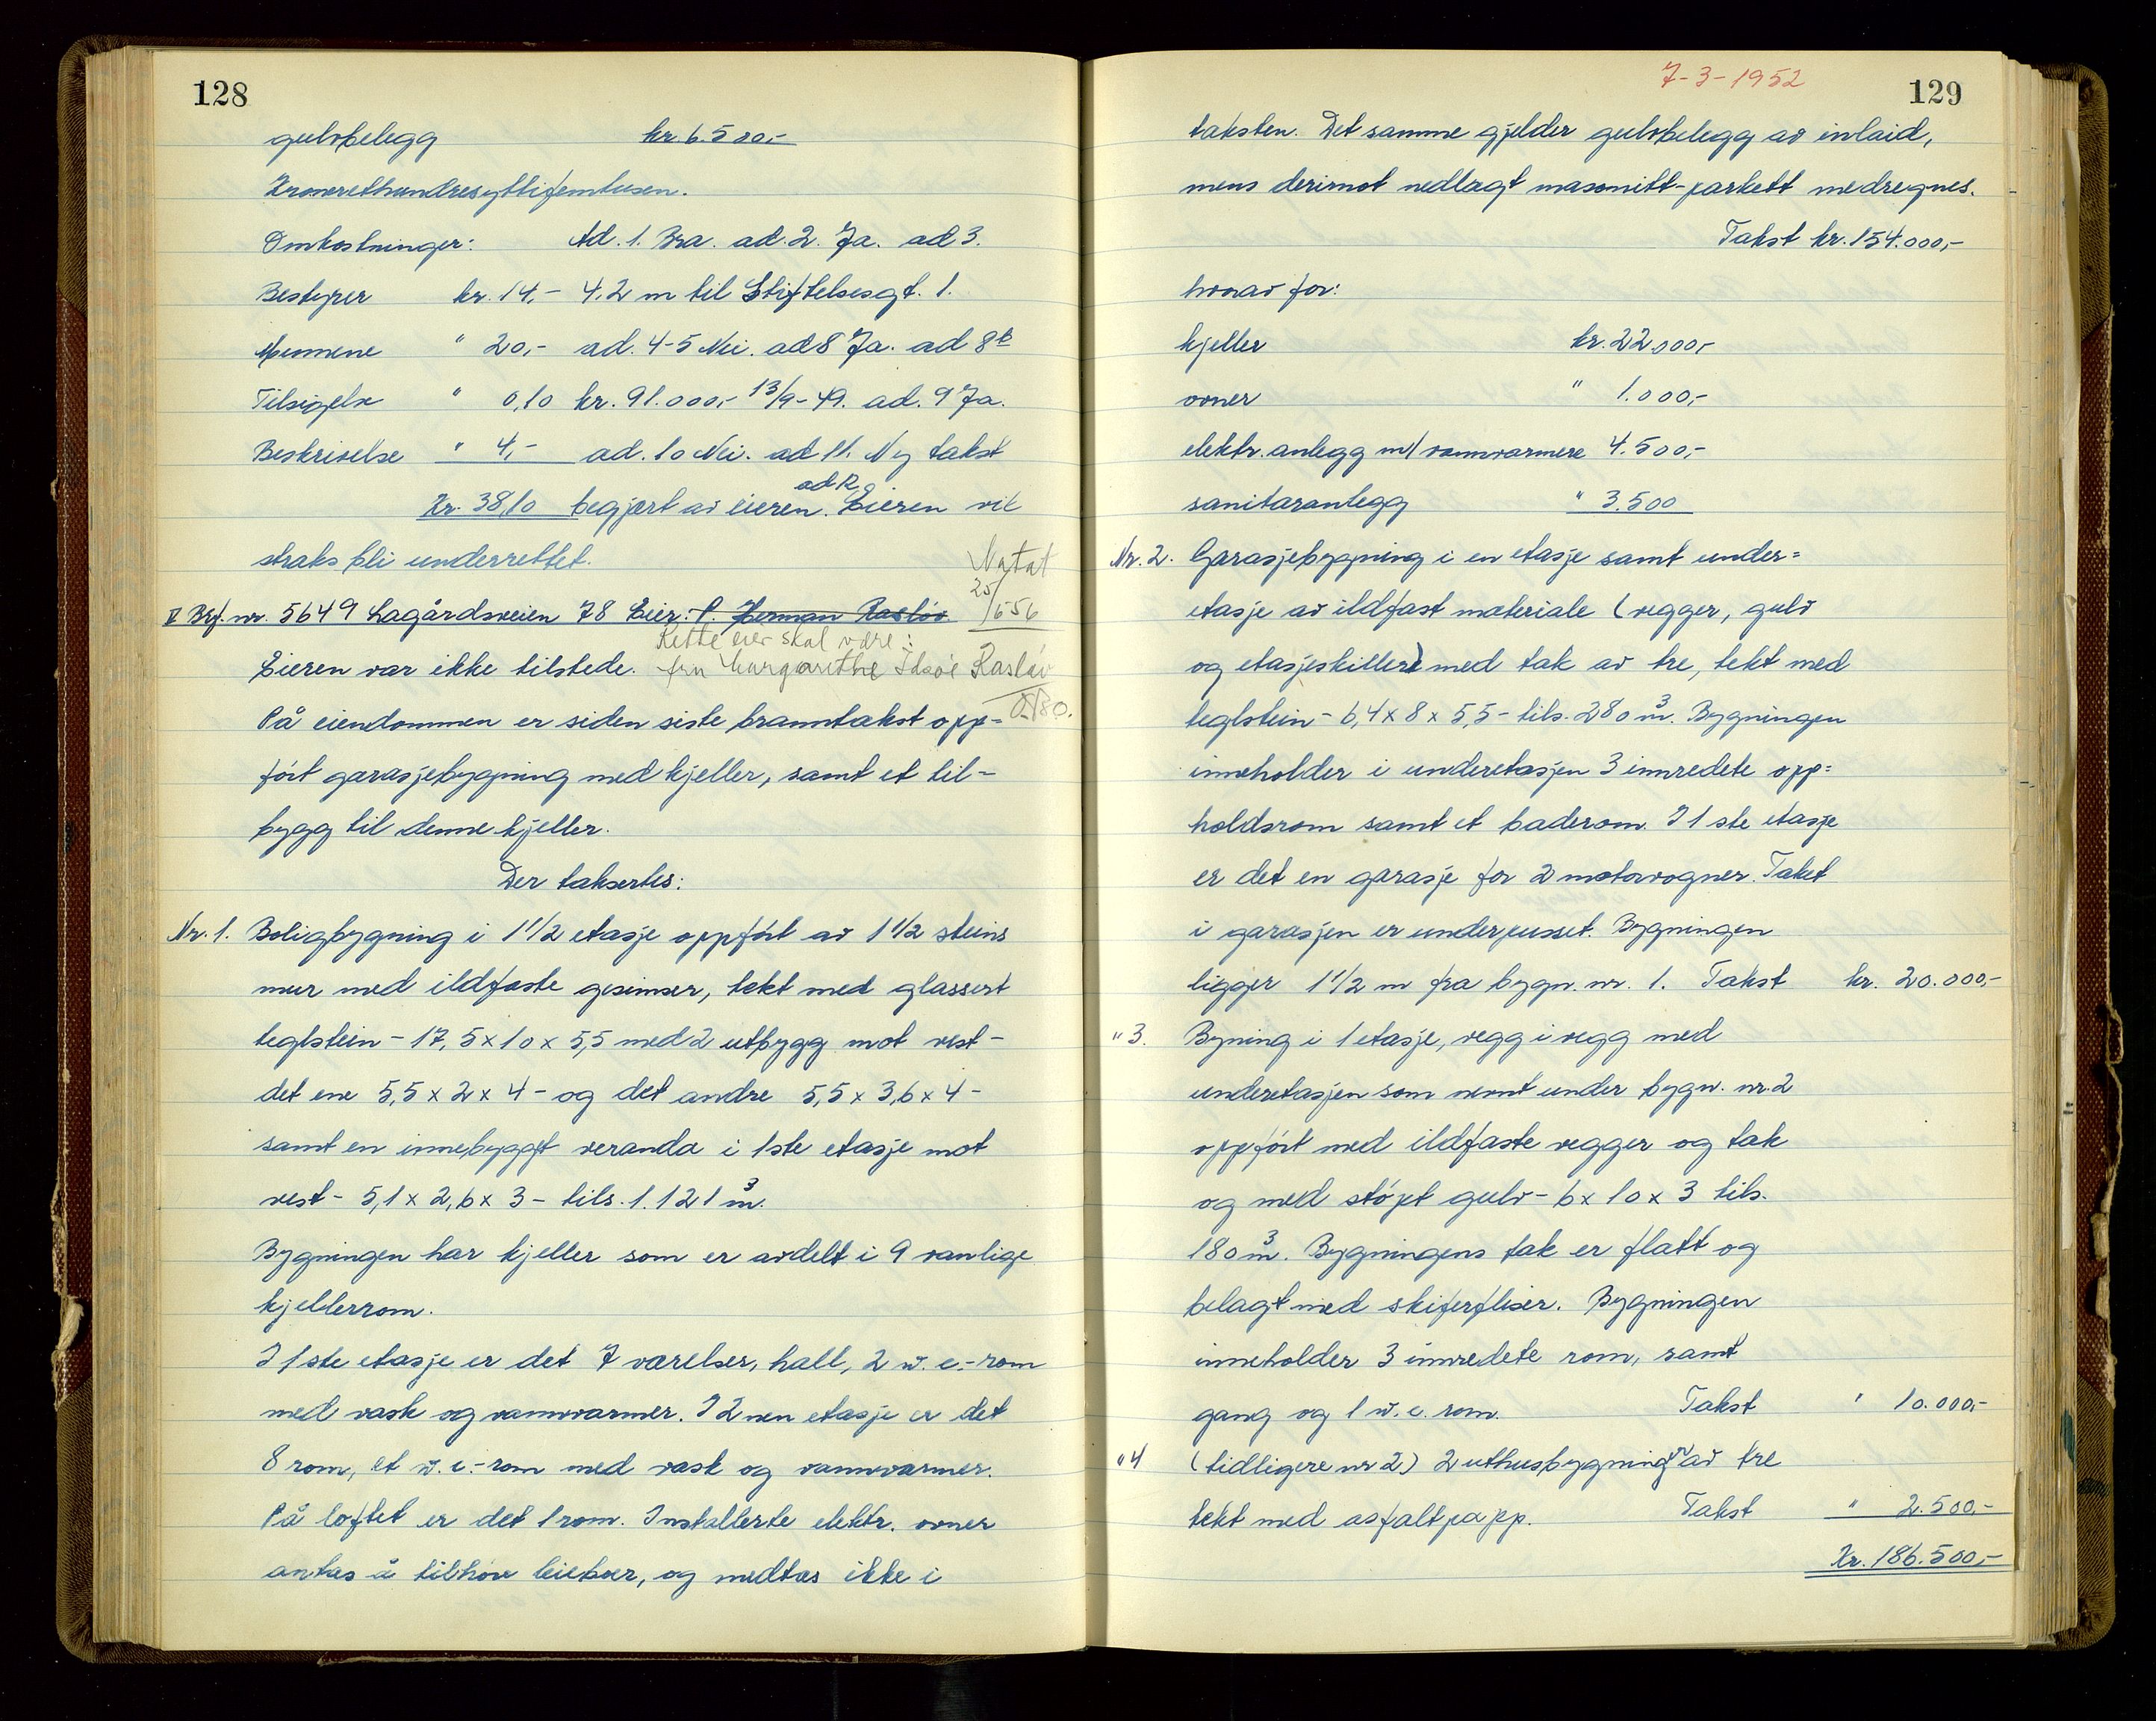 128
gulvbelegg kr. 6.500,-
Kroneretthundresyttifemtusen.
Omkostninger: Ad. 1. Bra. ad. 2. Ja. ad 3.
Bestyrer kr. 14,- 4.2 m til Stiftelsesgt. 1.
Mennene " 20,- ad. 4-5 Nei. ad 8 Ja. ad 8b
Tilsigelse " 0,10 kr. 91.000,- 13/9-49. ad. 9 Ja.
Beskrivelse " 4,- ad. 10 Nei. ad 11. Ny takst
ad R
Kr. 38,10 begjært av eieren. Eieren vil
straks bli underrettet.
Notat
25/656
II Brf. nr. 5649 Lagårdsveien 78 Eier: P. Herman Rasløv
Rette eier skal være:
Eieren var ikke tilstede. fru Margarethe Idsøe Rasløv
På eiendommen er siden siste branntakst opp=
ført garasjebygning med kjeller, samt et til=
bygg til denne kjeller.
Der taksertes:
Nr. 1. Boligbygning i 1 1/2 etasje oppført av 1 1/2 steins
mur med ildfaste gesimser, tekt med glassert
teglstein - 17,5 x 10 x 5,5 med 2 utbygg mot vest -
det ene 5,5 x 2 x 4 - og det andre 5,5 x 3,6 x 4 -
samt en innebygget veranda i 1ste etasje mot
vest - 5,1 x 2,6 x 3 - tils. 1.121 m³.
Bygningen har kjeller som er avdelt i 9 vanlige
kjellerrom.
I 1ste etasje er det 7 værelser, hall, 2 w.c.-rom
med vask og vannvarmer. I 2nen etasje er det
8 rom, et w.c.-rom med vask og vannvarmer.
På loftet er det 1 rom. Installerte elektr. ovner
antas å tilhøre leieboer, og medtas ikke i
7-3-1952
129
taksten. Det samme gjelder gulvbelegg av inlaid,
mens derimot nedlagt masonitt-parkett medregnes.
Takst kr. 154.000,-
hvorav for:
kjeller kr. 22.000,-
ovner " 1.000,-
elektr. anlegg m/ vannvarmere 4.500,-
sanitæranlegg " 3.500
Nr. 2. Garasjebygning i en etasje samt under=
etasje av ildfast materiale (vegger, gulv
og etasjeskiller) med tak av tre, tekt med
teglstein - 6,4 x 8 x 5,5 - tils. 280 m³. Bygningen
inneholder i underetasjen 3 innredete opp=
holdsrom samt et baderom. I 1ste etasje
er det en garasje for 2 motorvogner. Taket
i garasjen er underpusset. Bygningen
ligger 1 1/2 m fra bygn. nr. 1. Takst kr. 20.000,-
" 3. Byning i 1 etasje, vegg i vegg med
underetasjen som nemt under bygn. nr. 2
oppført med ildfaste vegger og tak
og med støpt gulv - 6 x 10 x 3 tils.
180 m³. Bygningens tak er flatt og
belagt med skiferfliser. Bygningen
inneholder 3 innredete rom, samt
gang og 1 w.c. rom. Takst " 10.000,-
" 4 (tidligere nr 2) 2 uthusbygninger av tre
tekt med asfaltpapp. Takst " 2.500,-
Kr. 186.500,-